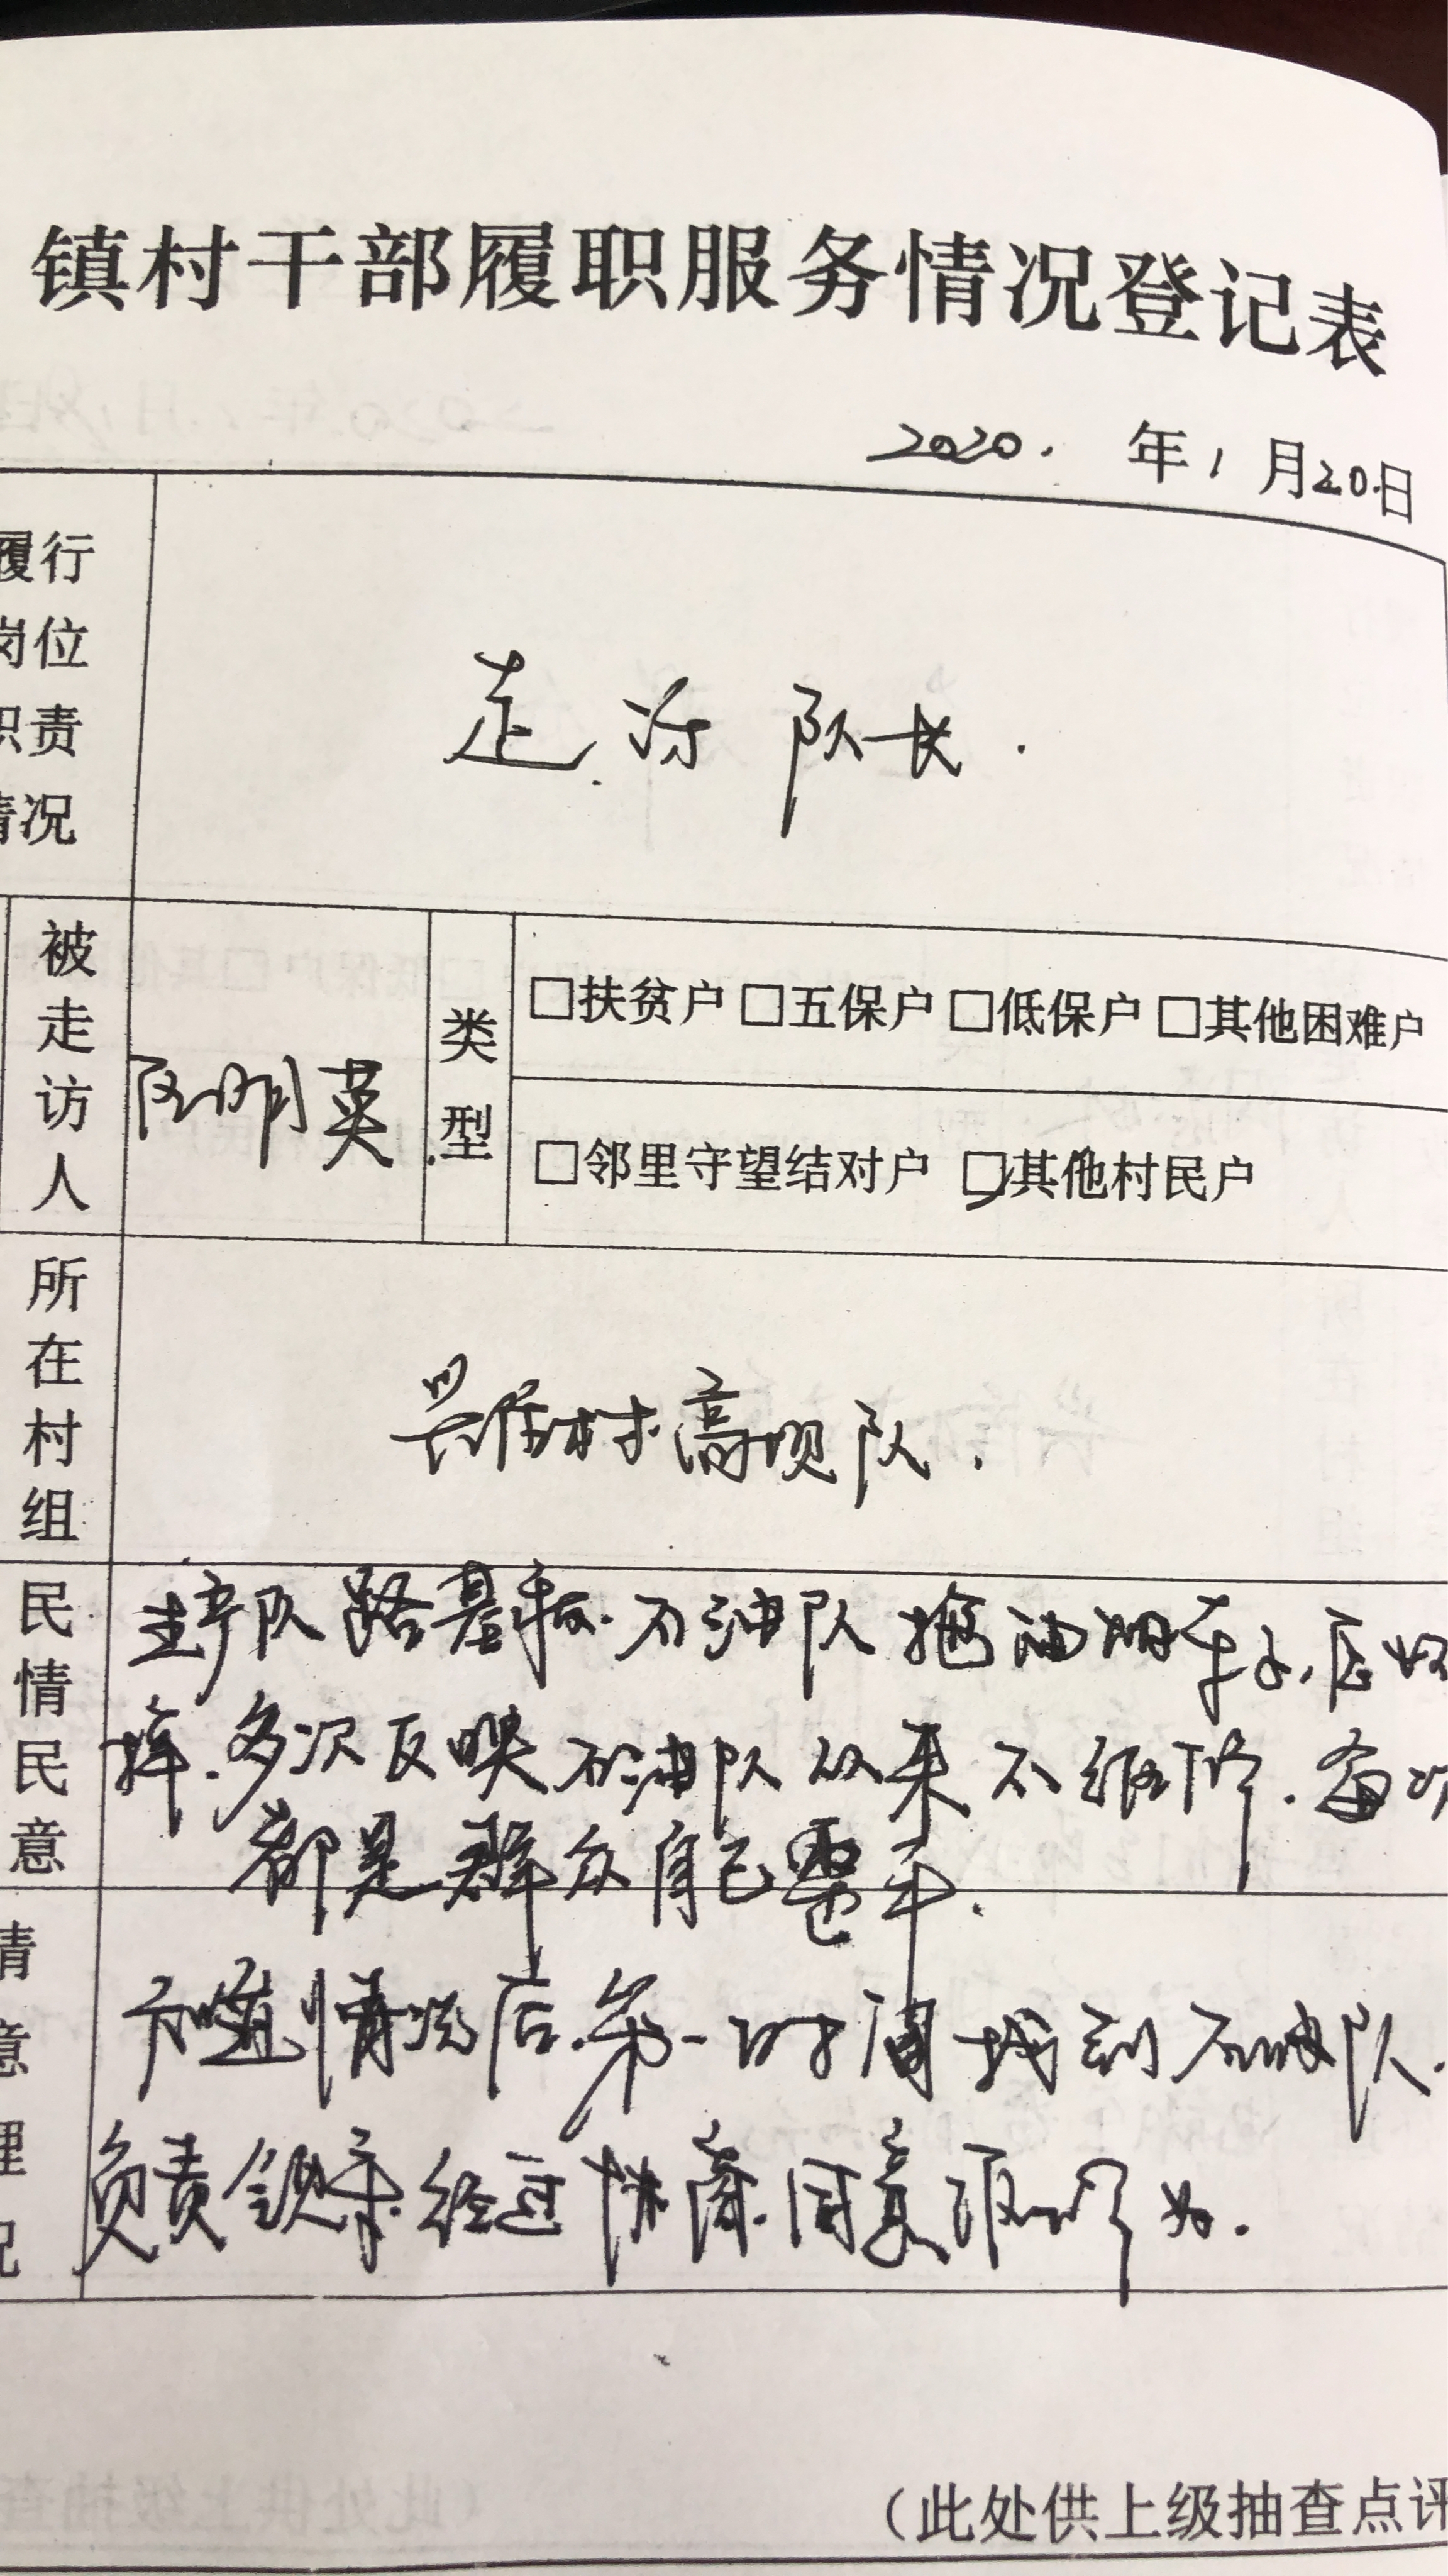 镇村干部履职服务情况登记表
2020. 年1月20日
履行
岗位
职责
情况
走访队长.
被走访人
明英
类型
□扶贫户 □五保户 □低保户 □其他困难户
□邻里守望结对户 ☑其他村民户
所在村组
兴隆村高坝队.
民情民意
生产队路基 石油队拖油 车
多次反映石油队从来不维修.每次
都是群众自己整平.
情
意
理
况
知道情况后.第一时间找到石油队.
负责 经过协商.同意
(此处供上级抽查点评